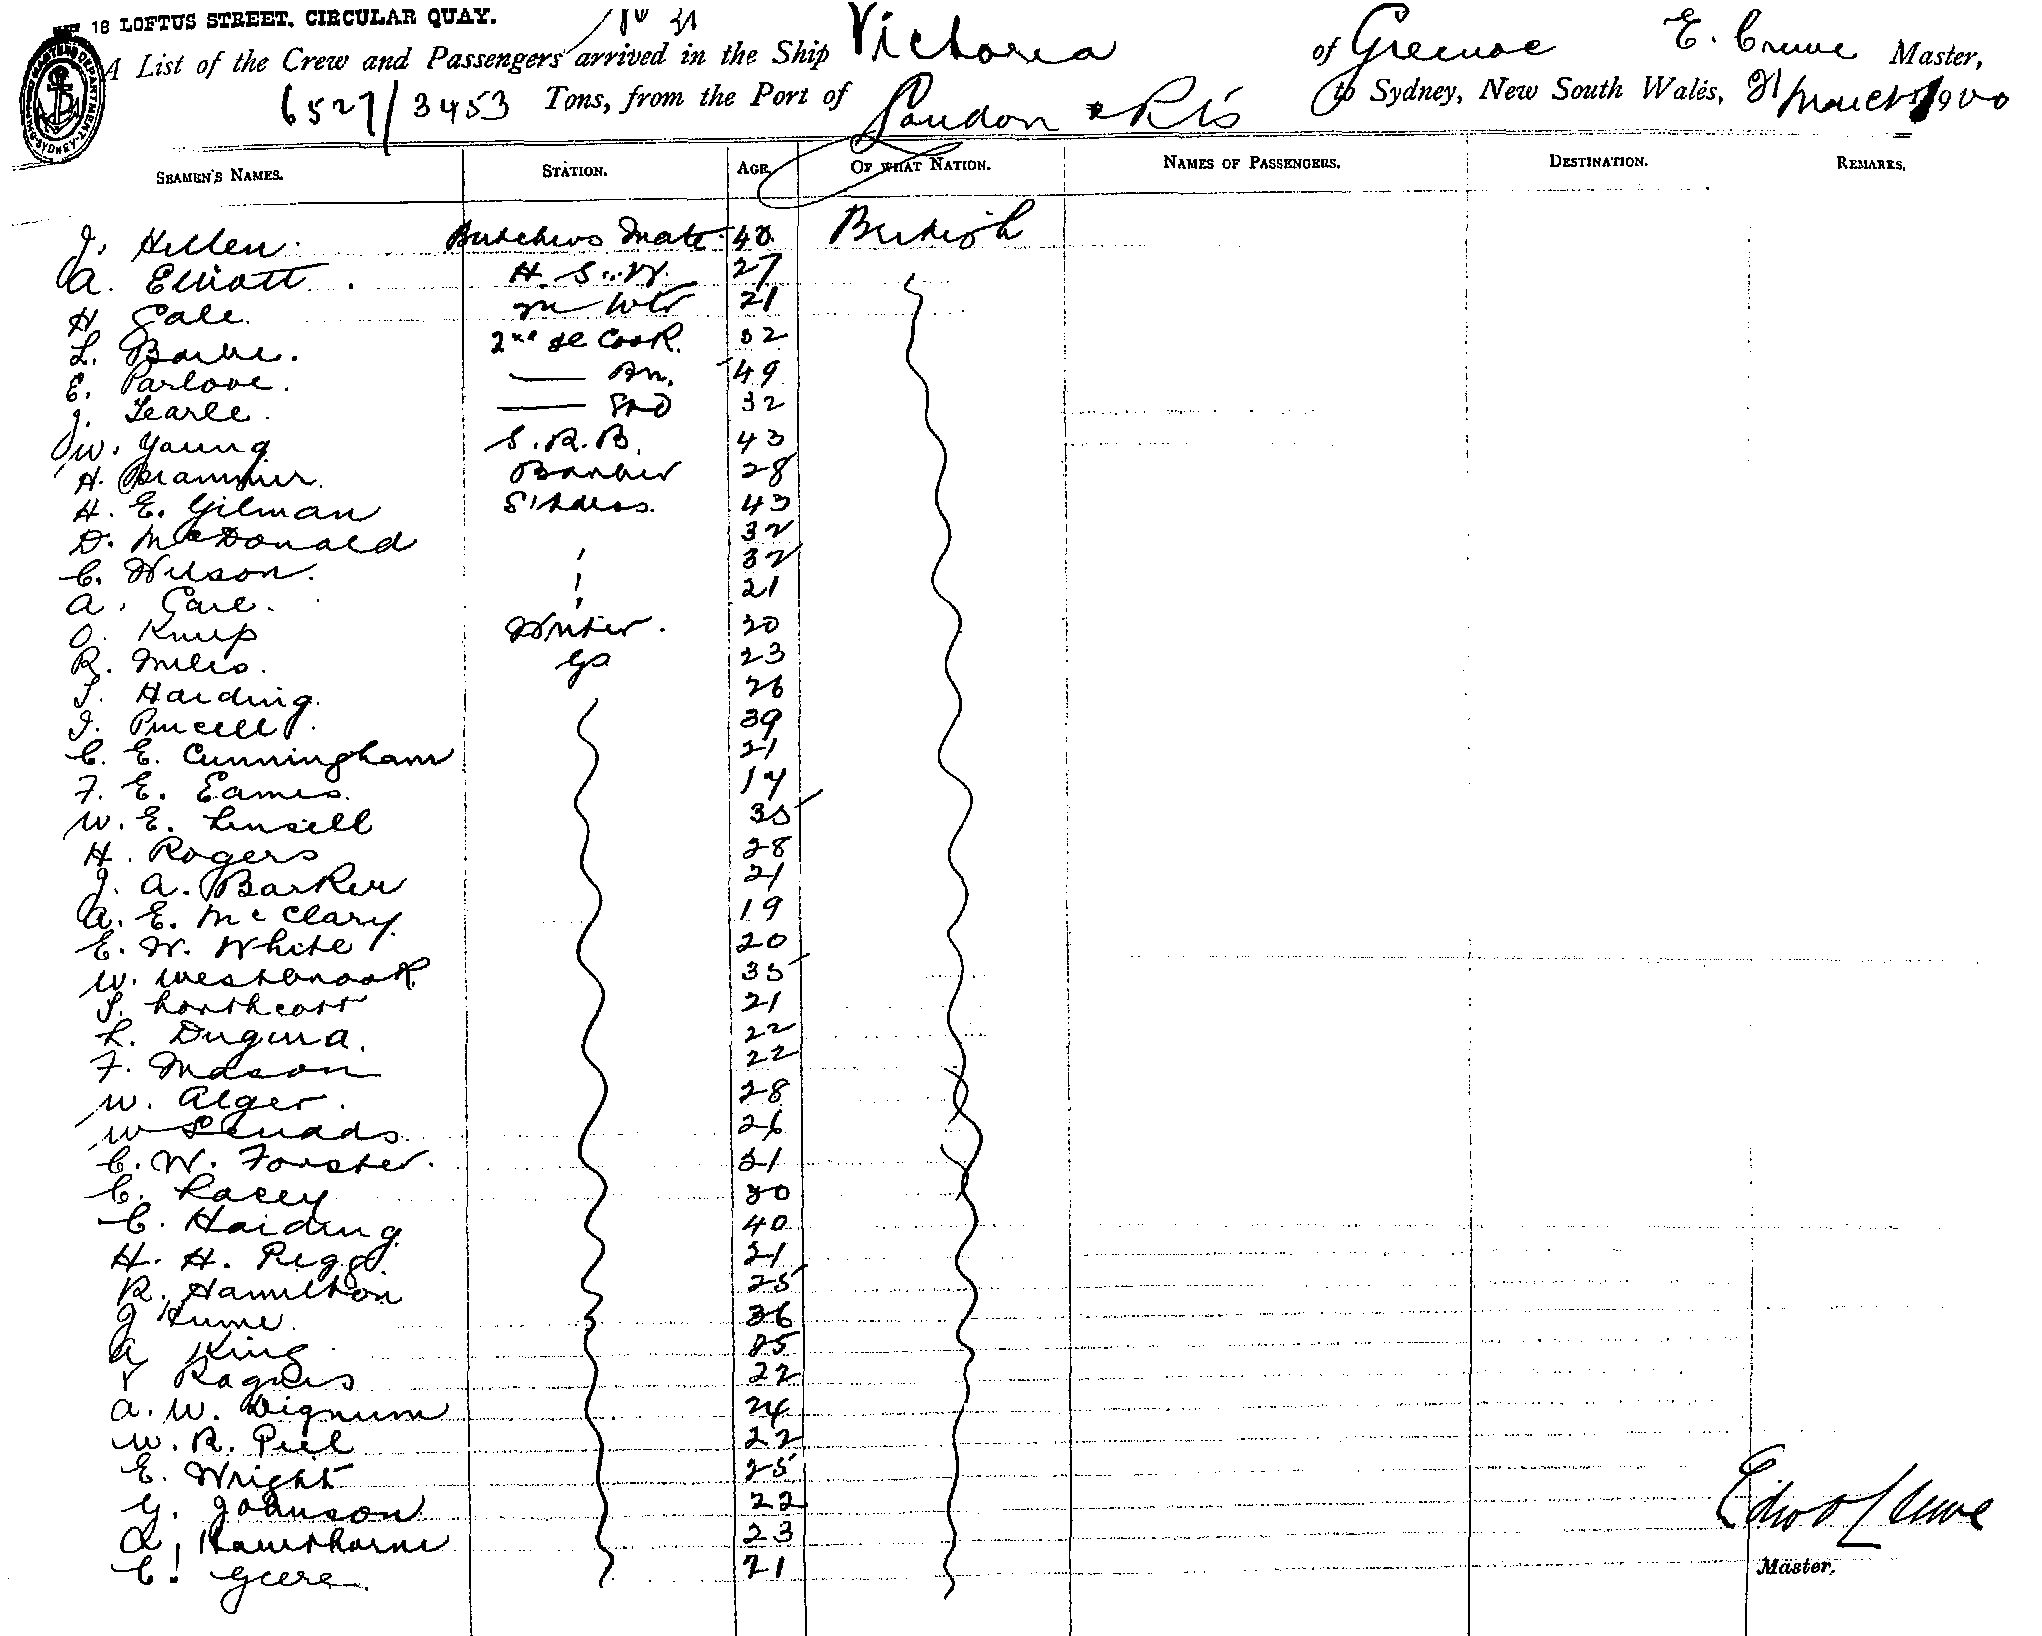 18 LOFTUS STREET, CIRCULAR QUAY.
A List of the Crew and Passengers arrived in the Ship Victoria of E. Crewe Master,
6527/3453 Tons, from the Port of London & to Sydney, New South Wales, 31 March 1900
SEAMEN'S NAMES. STATION. AGE. OF WHAT NATION. NAMES OF PASSENGERS. DESTINATION. REMARKS.
J. Hillen Butchers Mate 40 British
A. Elliott H. S. W. 27
H 21
L. 2nd Cook 32
E. Parlove. 49
J. Searle. 32
W. Young S. R. B. 43
H. Brammer. Barber 28
H. E. Gilman S'tdess. 43
D. McDonald 32
C. Wilson. 32
A. 21
O. 20
R. Miles. 23
S. Harding. 26
J. Purcell 39
C. E. Cunningham 21
F. E. Eames. 17
W. E. 35
H. Rogers 28
J. A. Barker 21
A. E. McClary. 19
E. W. White 20
W. Westbrook 35
S. 21
L. 22
F. Mason 22
W. Alger. 28
W 26
C. W. Forster. 21
C. Lacey 30
C. Harding 40
H. H. Pegg. 21
R. Hamilton 25
J Hume. 36
A King 25
22
A. W. Dignum 24
W. R. Piel 22
E. Wright 25
G. Johnson 22
A. Hawthorne 23
C. Geere. 21
Edwd Crewe
Master.